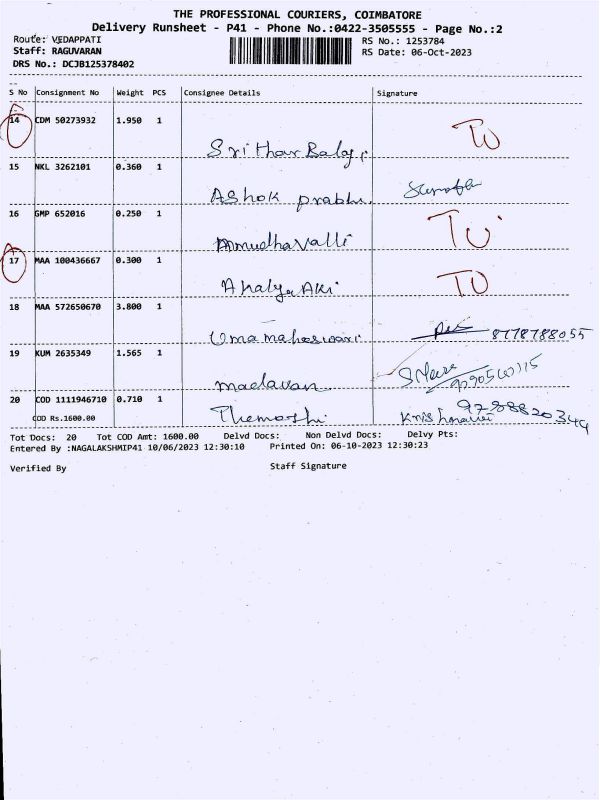 THE PROFESSIONAL COURIERS, COIMBATORE
Delivery Runsheet - P41 - Phone No.:0422-3505555 - Page No.:2
Route: VEDAPPATI
RS No.: 1253784
Staff: RAGUVARAN
RS Date: 06-Oct-2023
DRS No.: DCJB125378402
S No Consignment No Weight PCS Consignee Details Signature
14 CDM 50273932 1.950 1
Srithar Balaji TO
15 NKL 3262101 0.360 1
Ashok prabhu
16 GMP 652016 0.250 1
Ammudhavalli TO
17 MAA 100436667 0.300 1
TO
18 MAA 572650670 3.800 1
Uma maheswari 8778788055
19 KUM 2635349 1.565 1
madavan
20 COD 1111946710 0.710 1
COD Rs.1600.00
Tot Docs: 20 Tot COD Amt: 1600.00 Delvd Docs: Non Delvd Docs: Delvy Pts:
Entered By :NAGALAKSHMIP41 10/06/2023 12:30:10 Printed On: 06-10-2023 12:30:23
Verified By Staff Signature